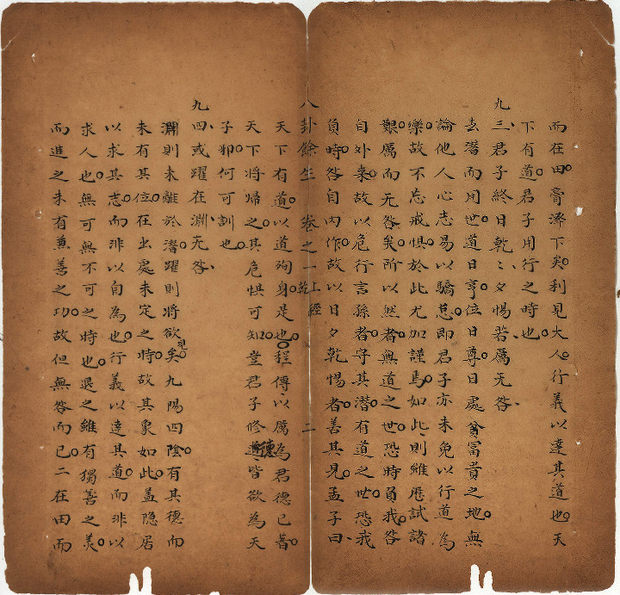 而在田膏澤下矣利見大人行義以達其道也天
下有道君子用行之時也
九三君子終日乾〻夕惕若厲无咎
去潛而用世道日亨位日尊日處富貴之地無
論他人心志易以驕怠即君子亦未免以行道為
樂故不忘戒懼於此尤加謹焉如此則雖歷試諸
艱厲而无咎矣所以然者無道之世恐時負我咎
自外來故以危行言孫者守其潛有道之世恐我
負時咎自內作故以日夕乾惕者善其見孟子曰
八卦餘生 卷之一 上經 乾 二
天下有道以道殉身是也程傳以厲為君德已著
天下將歸之其危惧可知豈君子修德皆欲為天
子邪何可訓也
九四或躍在淵无咎
淵則未離於潛躍則將欲見矣九陽四陰有其德而
未有其位在出處未定之時故其象如此蓋隱居
以求其志而非以自為也行義以達其道而非以
求人也無可無不可之時也退之雖有獨善之美
而進之未有兼善之功故但無咎而已二在田而